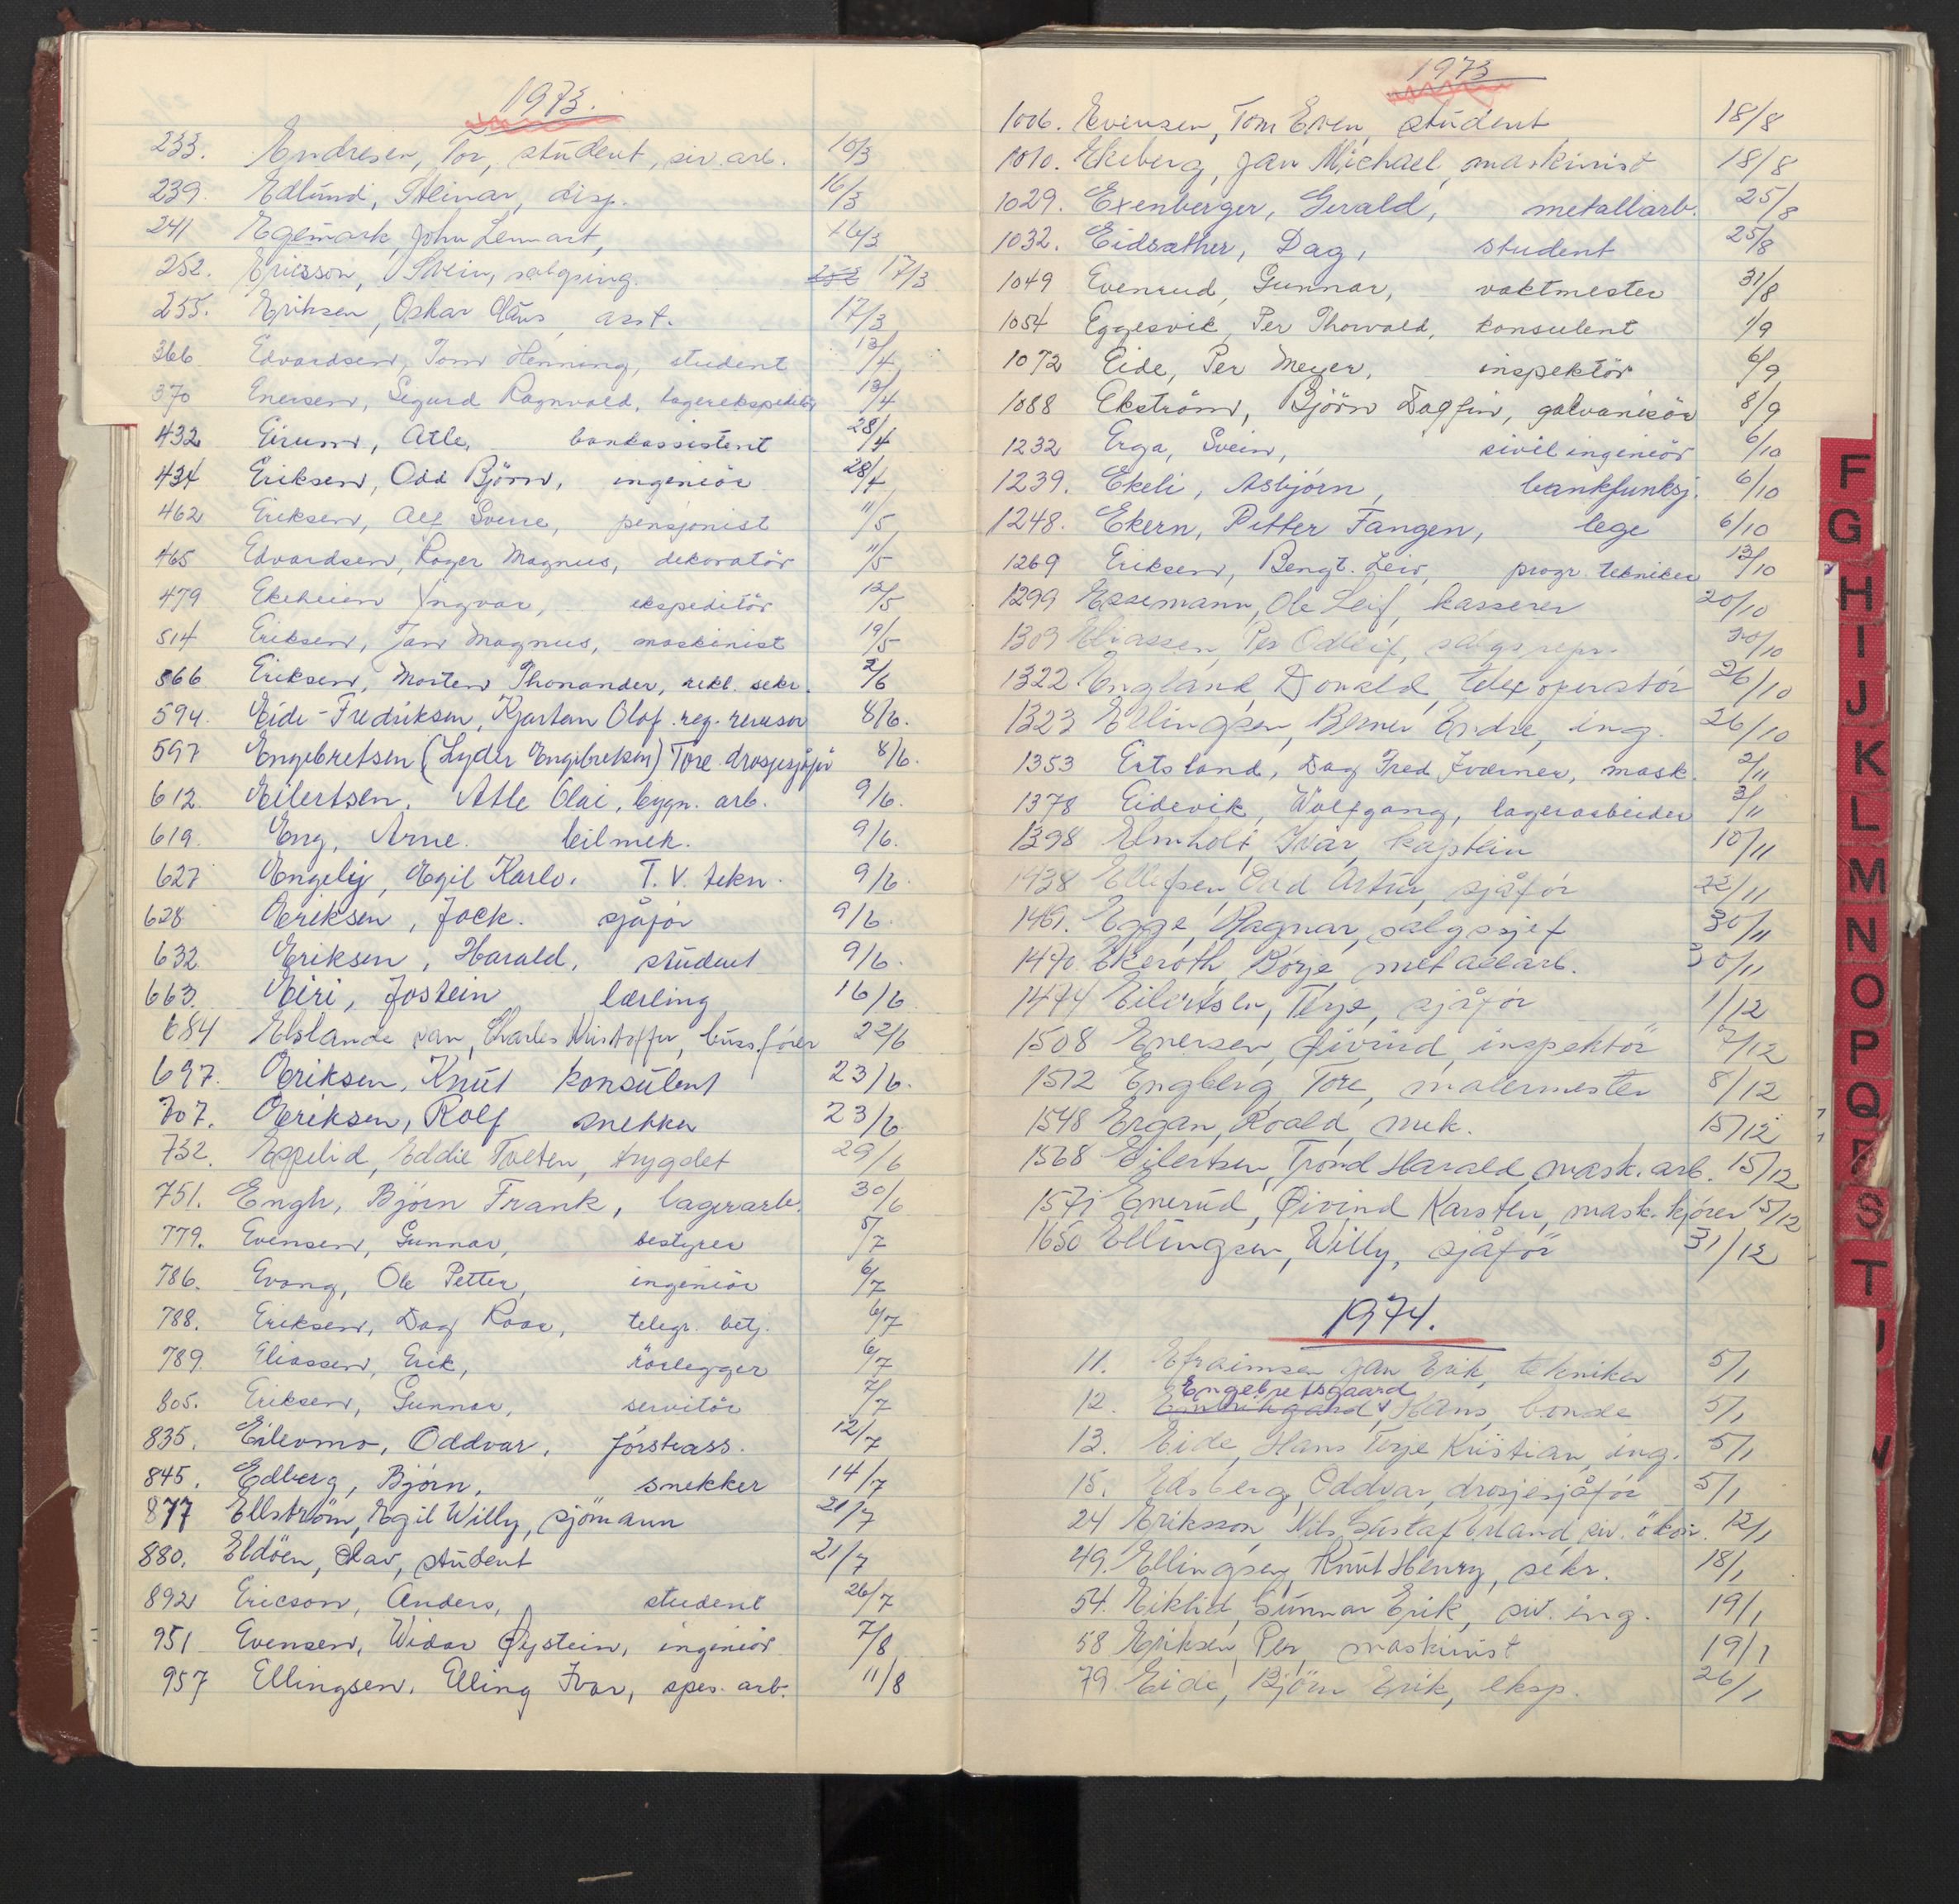 1973.
233. Endresen, Tor, student, siv. arb. 10/3
239. Edlund, Steinar, disp. 16/3
241 Egemark, John Lennart, 16/3
252. Ericsson, Svein, salgsing. 252 17/3
255. Eriksen, Oskar Claus asst. 17/3
366 Edvardsen, Tom Henning, student 13/4
370 Enersen, Sigurd Ragnvald, lagerekspeditör 13/4
432 Eirum, Atle, bankassistent 28/4
434 Eriksen, Odd Björn, ingeniör 28/4
462 Eriksen, Alf Sverre, pensjonist 11/5
465 Edvardsen, Roger Magnus, dekoratör 11/5
479 Ekeheien Yngvar, ekspeditör 12/5
514 Eriksen, Jan Magnus, maskinist 19/5
566 Eriksen, Morten Thonander, rekl. sekr. 2/6
594. Eide-Fredriksen, Kjartan Olof. reg. revisor 8/6.
597 Engebretsen (Lyder Engebretsen) Tore. drosjesjåfør 8/6.
612. Eilertsen. Atle Olai, bygn. arb. 9/6.
619. Eng, Arne. bilmek. 9/6.
627 Engely, Egil Karlo. T.V. tekn. 9/6.
628 Eriksen, Jack. sjåfør 9/6.
632 Eriksen, Harald. student 9/6.
663. Eiri, Jostein lærling 16/6
684 Elslande van, Charles Kristoffer, bussfører 22/6
697. Eriksen, Knut konsulent 23/6.
707. Eriksen, Rolf snekker 23/6
732. Espelid, Eddie Tveten, trygdet 29/6
751. Engh, Bjørn Frank, lagerarb. 30/6
779. Evensen, Gunnar, bestyrer 5/7
786. Evang, Ole Petter, ingeniör 6/7
788. Eriksen, Dag Roar, telegr. betj. 6/7
789. Eliassen, Erik, rörlegger 6/7
805. Eriksen, Gunnar, servitör 7/7
835. Eilevmo, Oddvar. førsteass. 12/7
845. Edberg, Bjørn, snekker 14/7
877 Ellström, Egil Willy, sjömann 21/7
880. Eldöen, Olav, student 21/7
892 Ericson, Anders, student 26/7
951 Evensen, Widar Øystein, ingeniör 7/8
957 Ellingsen, Elling Ivar, spes. arb. 11/8
1973
1006. Evensen, Tom Even, student 18/8
1010. Ekeberg, Jan Michael, maskinist 18/8
1029. Exenberger, Gerald, metallarb. 25/8
1032. Eidsæther, Dag, student 25/8
1049 Evenrud, Gunnar, vaktmester 31/8
1054 Eggesvik, Per Thorvald, konsulent 1/9
1072 Eide, Per Meyer, inspektör 6/9
1088 Ekström, Björn Dagfin, galvanisör 8/9
1232 Erga, Svein, sivilingeniör 6/10
1239. Ekeli, Asbjørn, bankfunksj. 6/10
1248. Ekern, Petter Fangen, lege 6/10
1269 Eriksen, Bengt. Leiv, progr. tekniker 13/10
1299 Essemann, Ole Leif, kasserer 20/10
1309 Eliassen, Per Odleif, salgsrepr. 20/10
1322 England, Donald, telexoperatör 26/10
1323 Ellingsen, Berner Endre, ing. 26/10
1353 Ertsland, Dag Fred Iverner, mask. 2/11
1378 Eidevik, Wolfgang, lagerarbeider 3/11
1398 Elmholt, Ivar, kaptein 10/11
1438 Ellefsen, Odd Artur, sjåför 22/11
1461. Egge, Ragnar, salgssjef 30/11
1470. Ekeroth, Börje, metallarb. 30/11
1474 Eilertsen, Terje, sjåför 1/12
1508 Enersen, Øivind, inspektör 7/12
1512 Engberg, Tore, malermester 8/12
1548 Ergan, Roald, mek. 15/12
1568 Eilertsen, Trond Harald, mask. arb. 15/12
1571 Enerud, Øivind Karsten, mask. kjører 15/12
1650 Ellingsen, Willy, sjåför 31/12
1974.
11. Efraimsen Jan Erik, tekniker 5/1
Engebretsgaard
12. Hans, bonde 5/1
13. Eide, Hans Terje Kristian, ing. 5/1
15. Edsberg, Oddvar, drosjesjåför 5/1
24 Eriksson, Nils Gustaf Erland, siv. ökon. 12/1
49. Ellingsen, Knut Henry, sekr. 18/1
54. Eiklid, Gunnar Erik, siv. ing. 19/1
58 Eriksen, Per, maskinist 19/1
79 Eide, Björn Erik, eksp. 26/1
F
G
H
I
J
K
L
M
N
O
P
Q
R
S
T